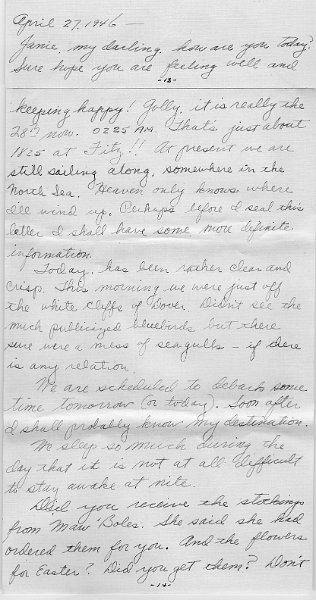 April 27, 1946 —
Janie, my darling, how are you today?
Sure hope you are feeling well and
-13-
keeping happy! Golly, it is really the
28th now. 0225 AM. That's just about
1825 at Fitz!! At present we are
still sailing along, somewhere in the
North Sea. Heaven only knows where
I'll wind up. Perhaps before I seal this
letter I shall have some more definite
information.
Today has been rather clear and
crisp. This morning we were just off
the white cliffs of Dover. Didn't see the
much publicized bluebirds but there
sure were a mess of seagulls - if there
is any relation.
We are scheduled to debark some
time tomorrow (or today). Soon after
I shall probably know my destination.
We sleep so much during the
day that it is not at all difficult
to stay awake at nite.
Did you receive the stockings
from Maw Boles. She said she had
ordered them for you. And the flowers
for Easter? Did you get them? Don't
-14-